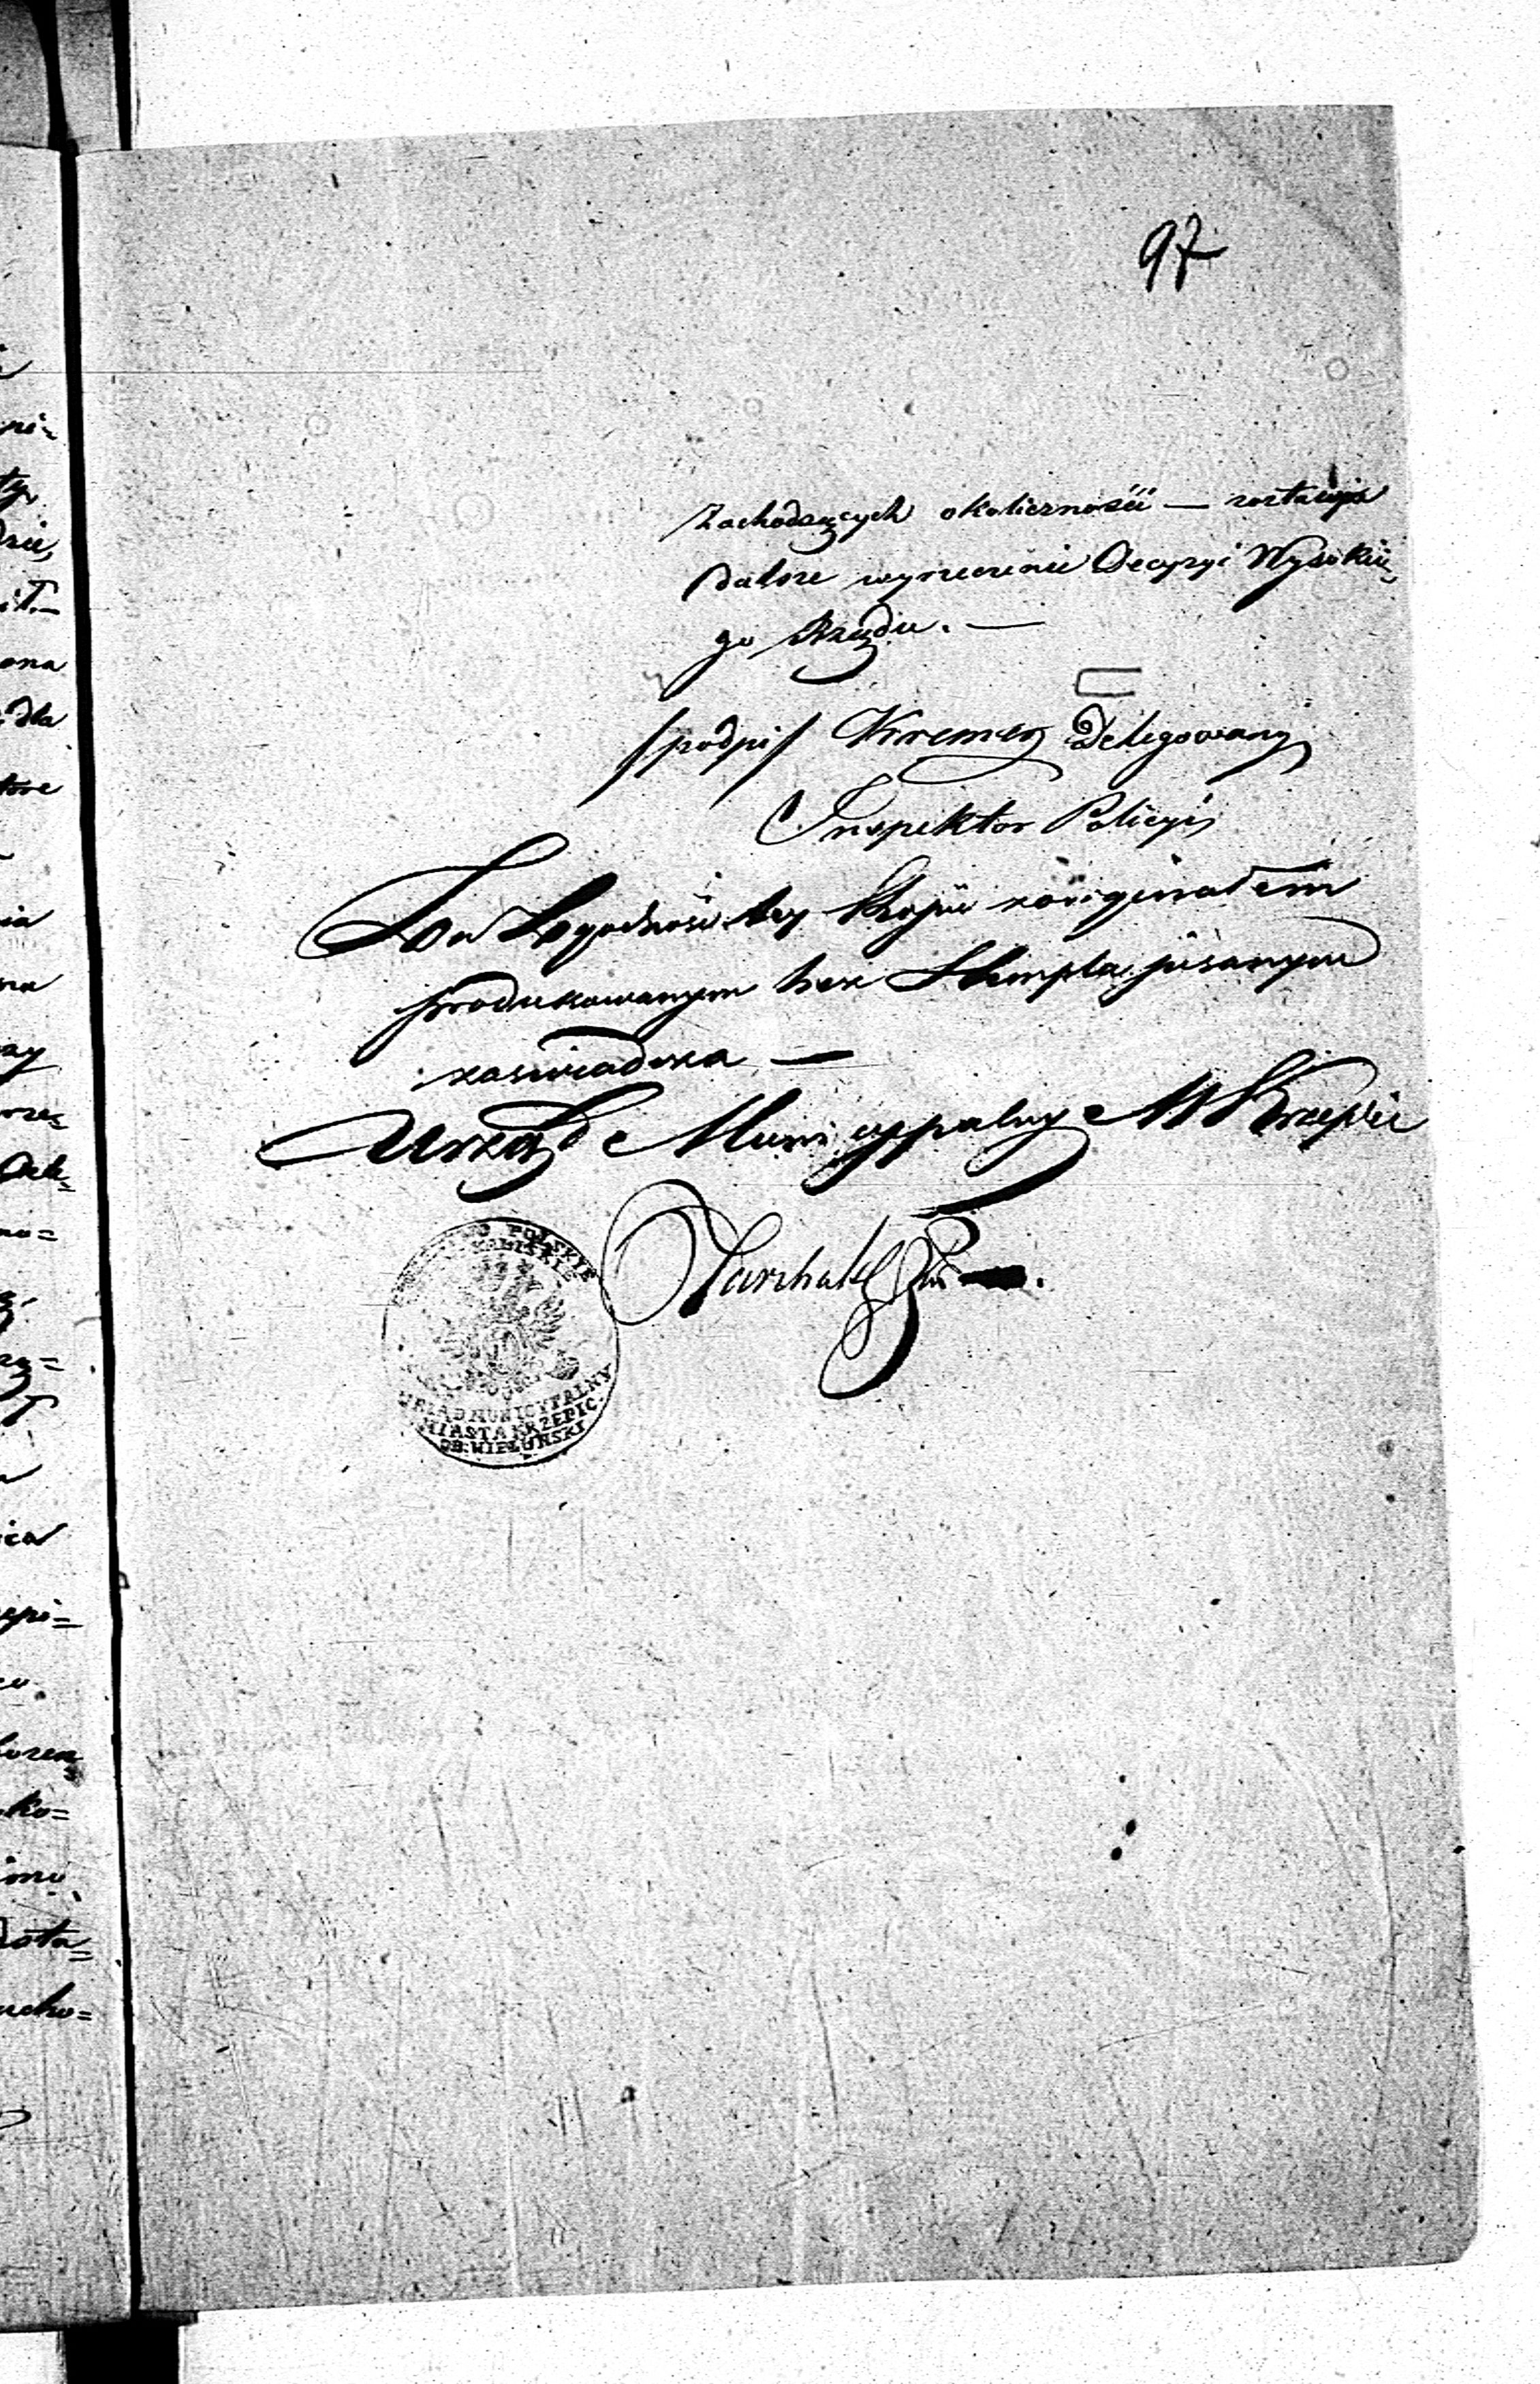 97
Zachodzących okoliczności — zostawia
dalsze wyrzeczenie Decyzyi Wysokie-
go Rządu. —
/podpis/ Kremer Delegowany
Inspektor Policyi
Za Zgodność tey Kopii z originałem
produkowanym bez Stempla pisanym
zaświadcza —
Urząd Municypalny M Krzepic
POLSKIE
KALISKIE
URZĄD MUNICYPALNY
MIASTA KRZEPIC
OB: WIELUNSKI